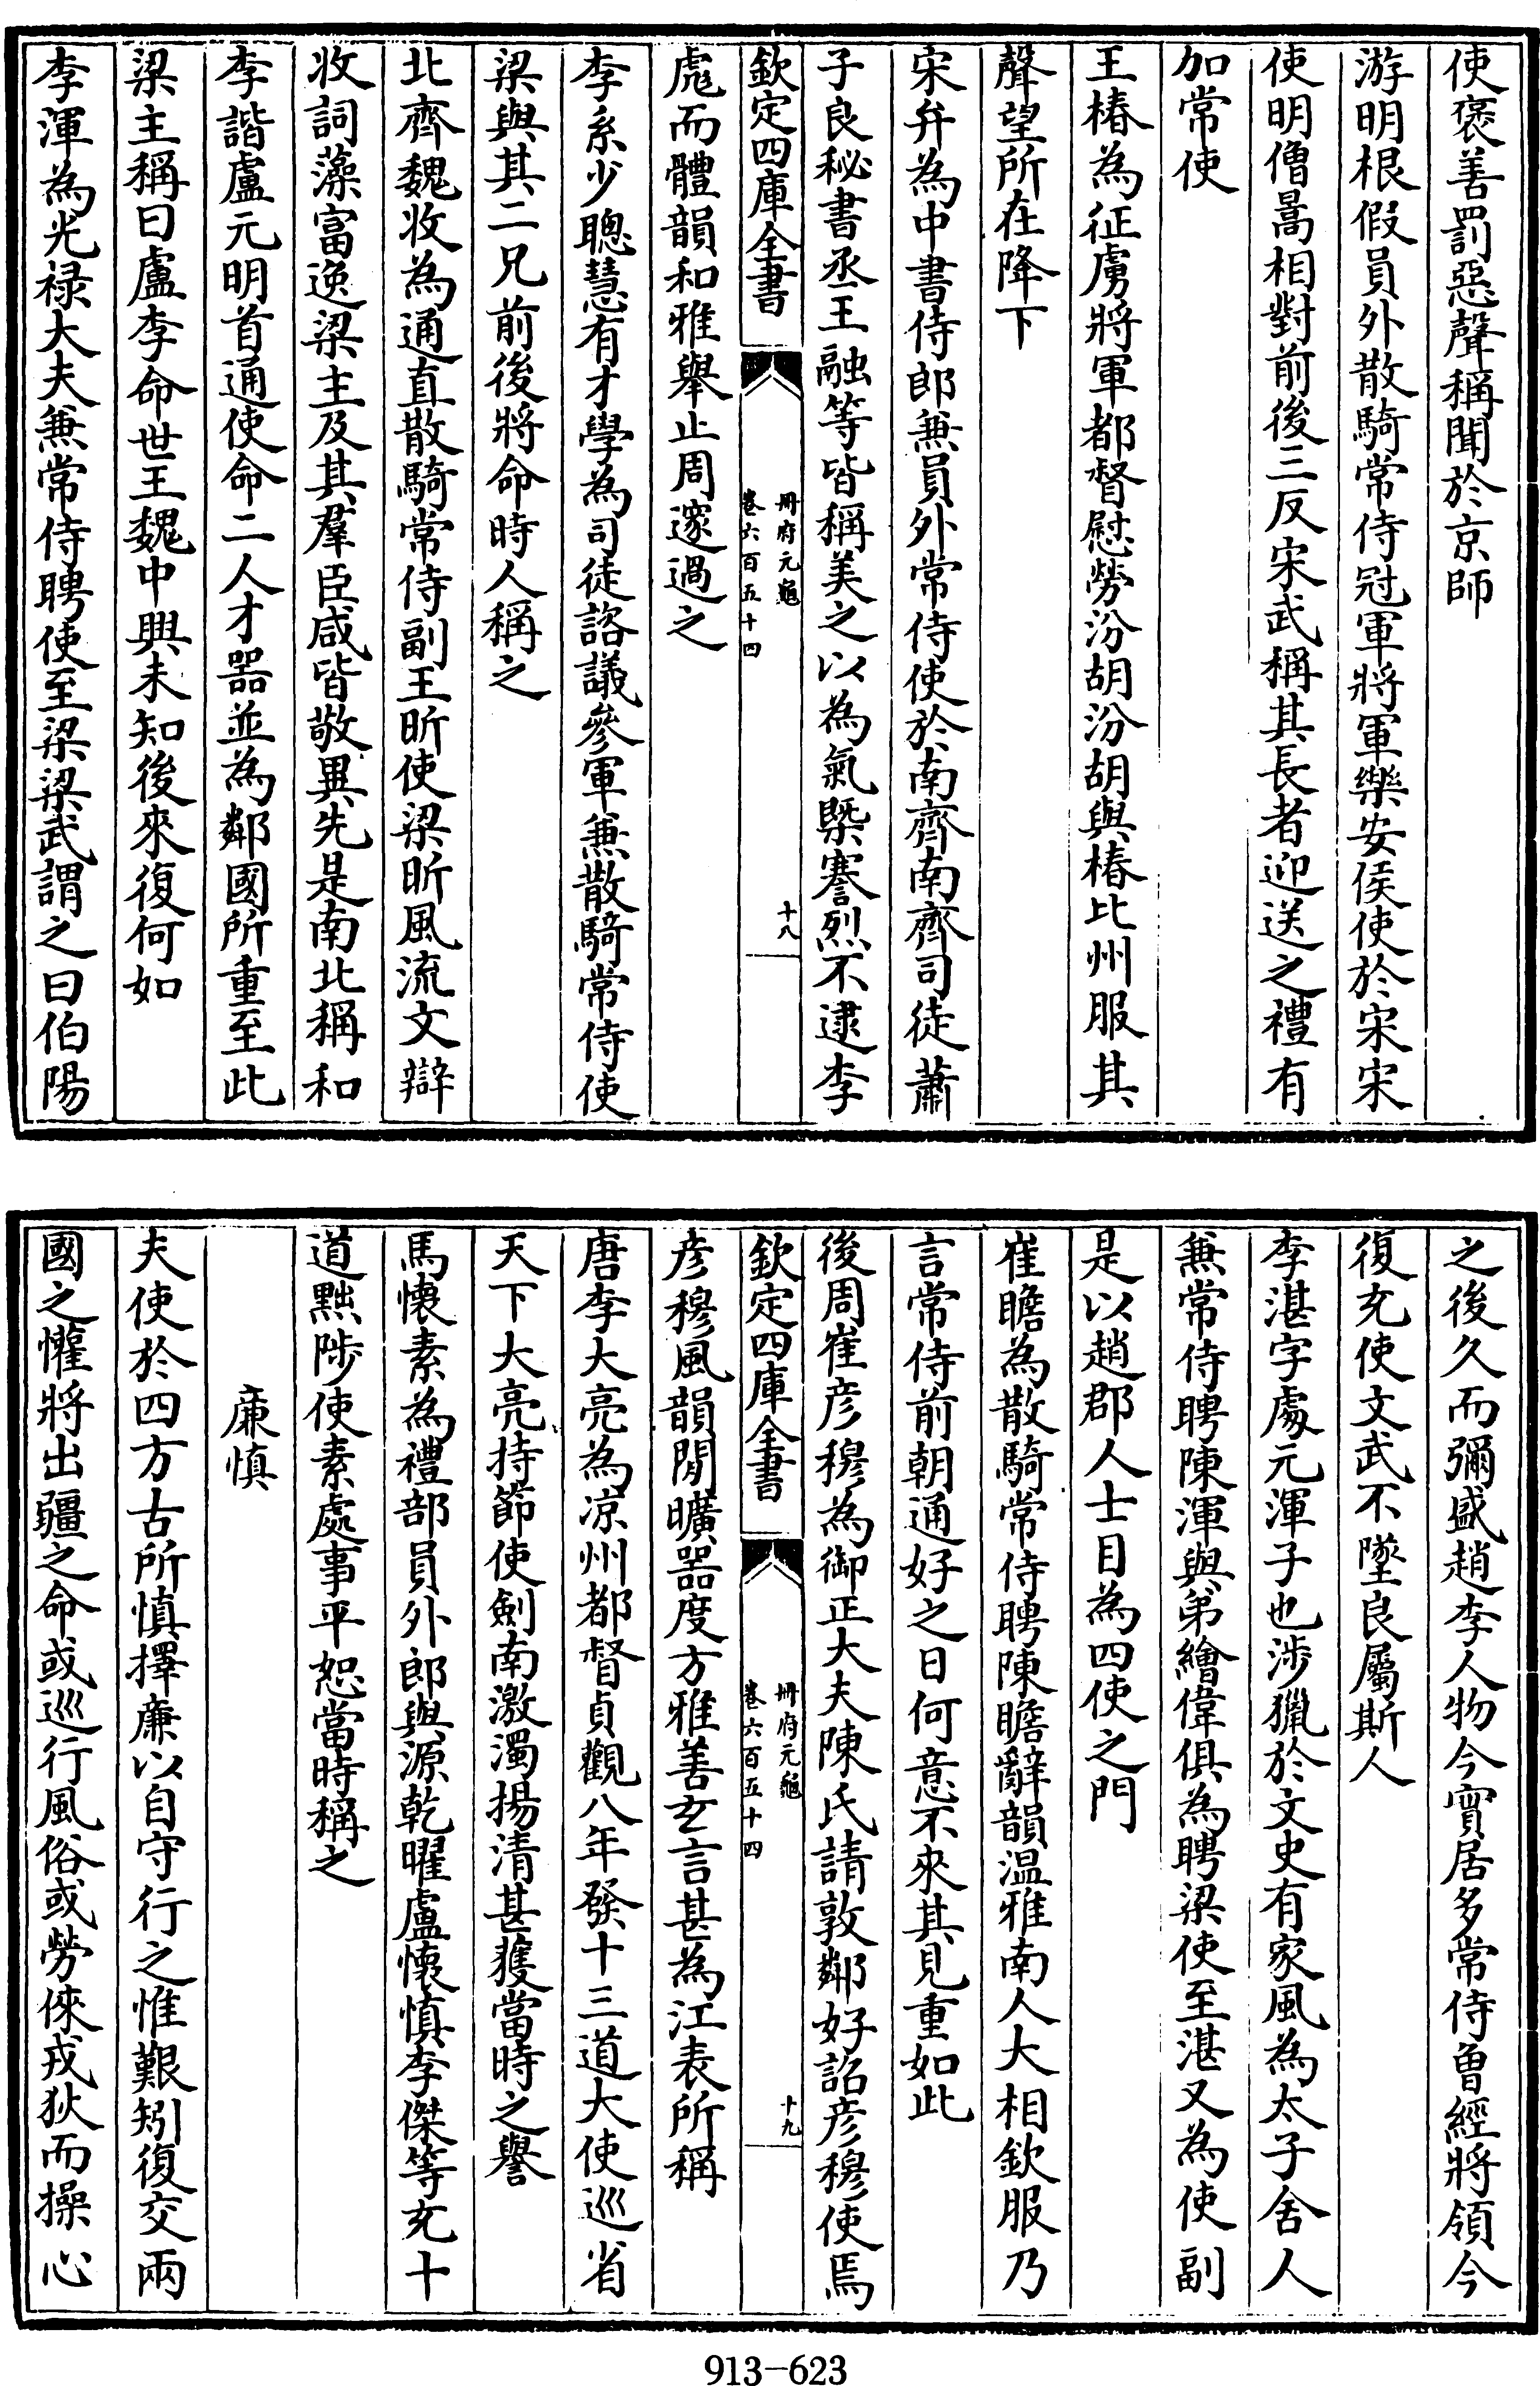 使褒善罰惡聲稱聞於京師
游明根假員外散騎常侍冠軍將軍樂安侯使於宋宋
使明僧暠相對前後三反宋武稱其長者迎送之禮有
加常使
王椿為征虜將軍都督慰勞汾胡汾胡與椿比州服其
聲望所在降下
宋弁為中書侍郎兼員外常侍使於南齊南齊司徒蕭
子良秘書丞王融等皆稱美之以為氣槩謇烈不逮李
欽定四庫全書
冊府元龜
卷六百五十四
十八
彪而體韻和雅舉止周邃過之
李系少聰慧有才學為司徒諮議參軍兼散騎常侍使
梁與其二兄前後將命時人稱之
北齊魏收為通直散騎常侍副王昕使梁昕風流文辯
收詞藻富逸梁主及其羣臣咸皆敬異先是南北稱和
李諧盧元明首通使命二人才器並為鄰國所重至此
梁主稱曰盧李命世王魏中興未知後來復何如
李渾為光祿大夫兼常侍聘使至梁梁武謂之曰伯陽
之後久而彌盛趙李人物今實居多常侍曾經將領今
復充使文武不墜良屬斯人
李湛字處元渾子也涉獵於文史有家風為太子舍人
兼常侍聘陳渾與弟繪偉俱為聘梁使至湛又為使副
是以趙郡人士目為四使之門
崔瞻為散騎常侍聘陳瞻辭韻温雅南人大相欽服乃
言常侍前朝通好之日何意不來其見重如此
後周崔彦穆為御正大夫陳氏請敦鄰好詔彦穆使焉
欽定四庫全書
冊府元龜
卷六百五十四
十九
彦穆風韻閒曠器度方雅善玄言甚為江表所稱
唐李大亮為凉州都督貞觀八年發十三道大使巡省
天下大亮持節使劍南激濁揚清甚獲當時之譽
馬懷素為禮部員外郎與源乾曜盧懷慎李傑等充十
道黜陟使素處事平恕當時稱之
廉慎
夫使於四方古所慎擇廉以自守行之惟艱矧復交兩
國之懽將出疆之命或巡行風俗或勞倈戎狄而操心
913-623